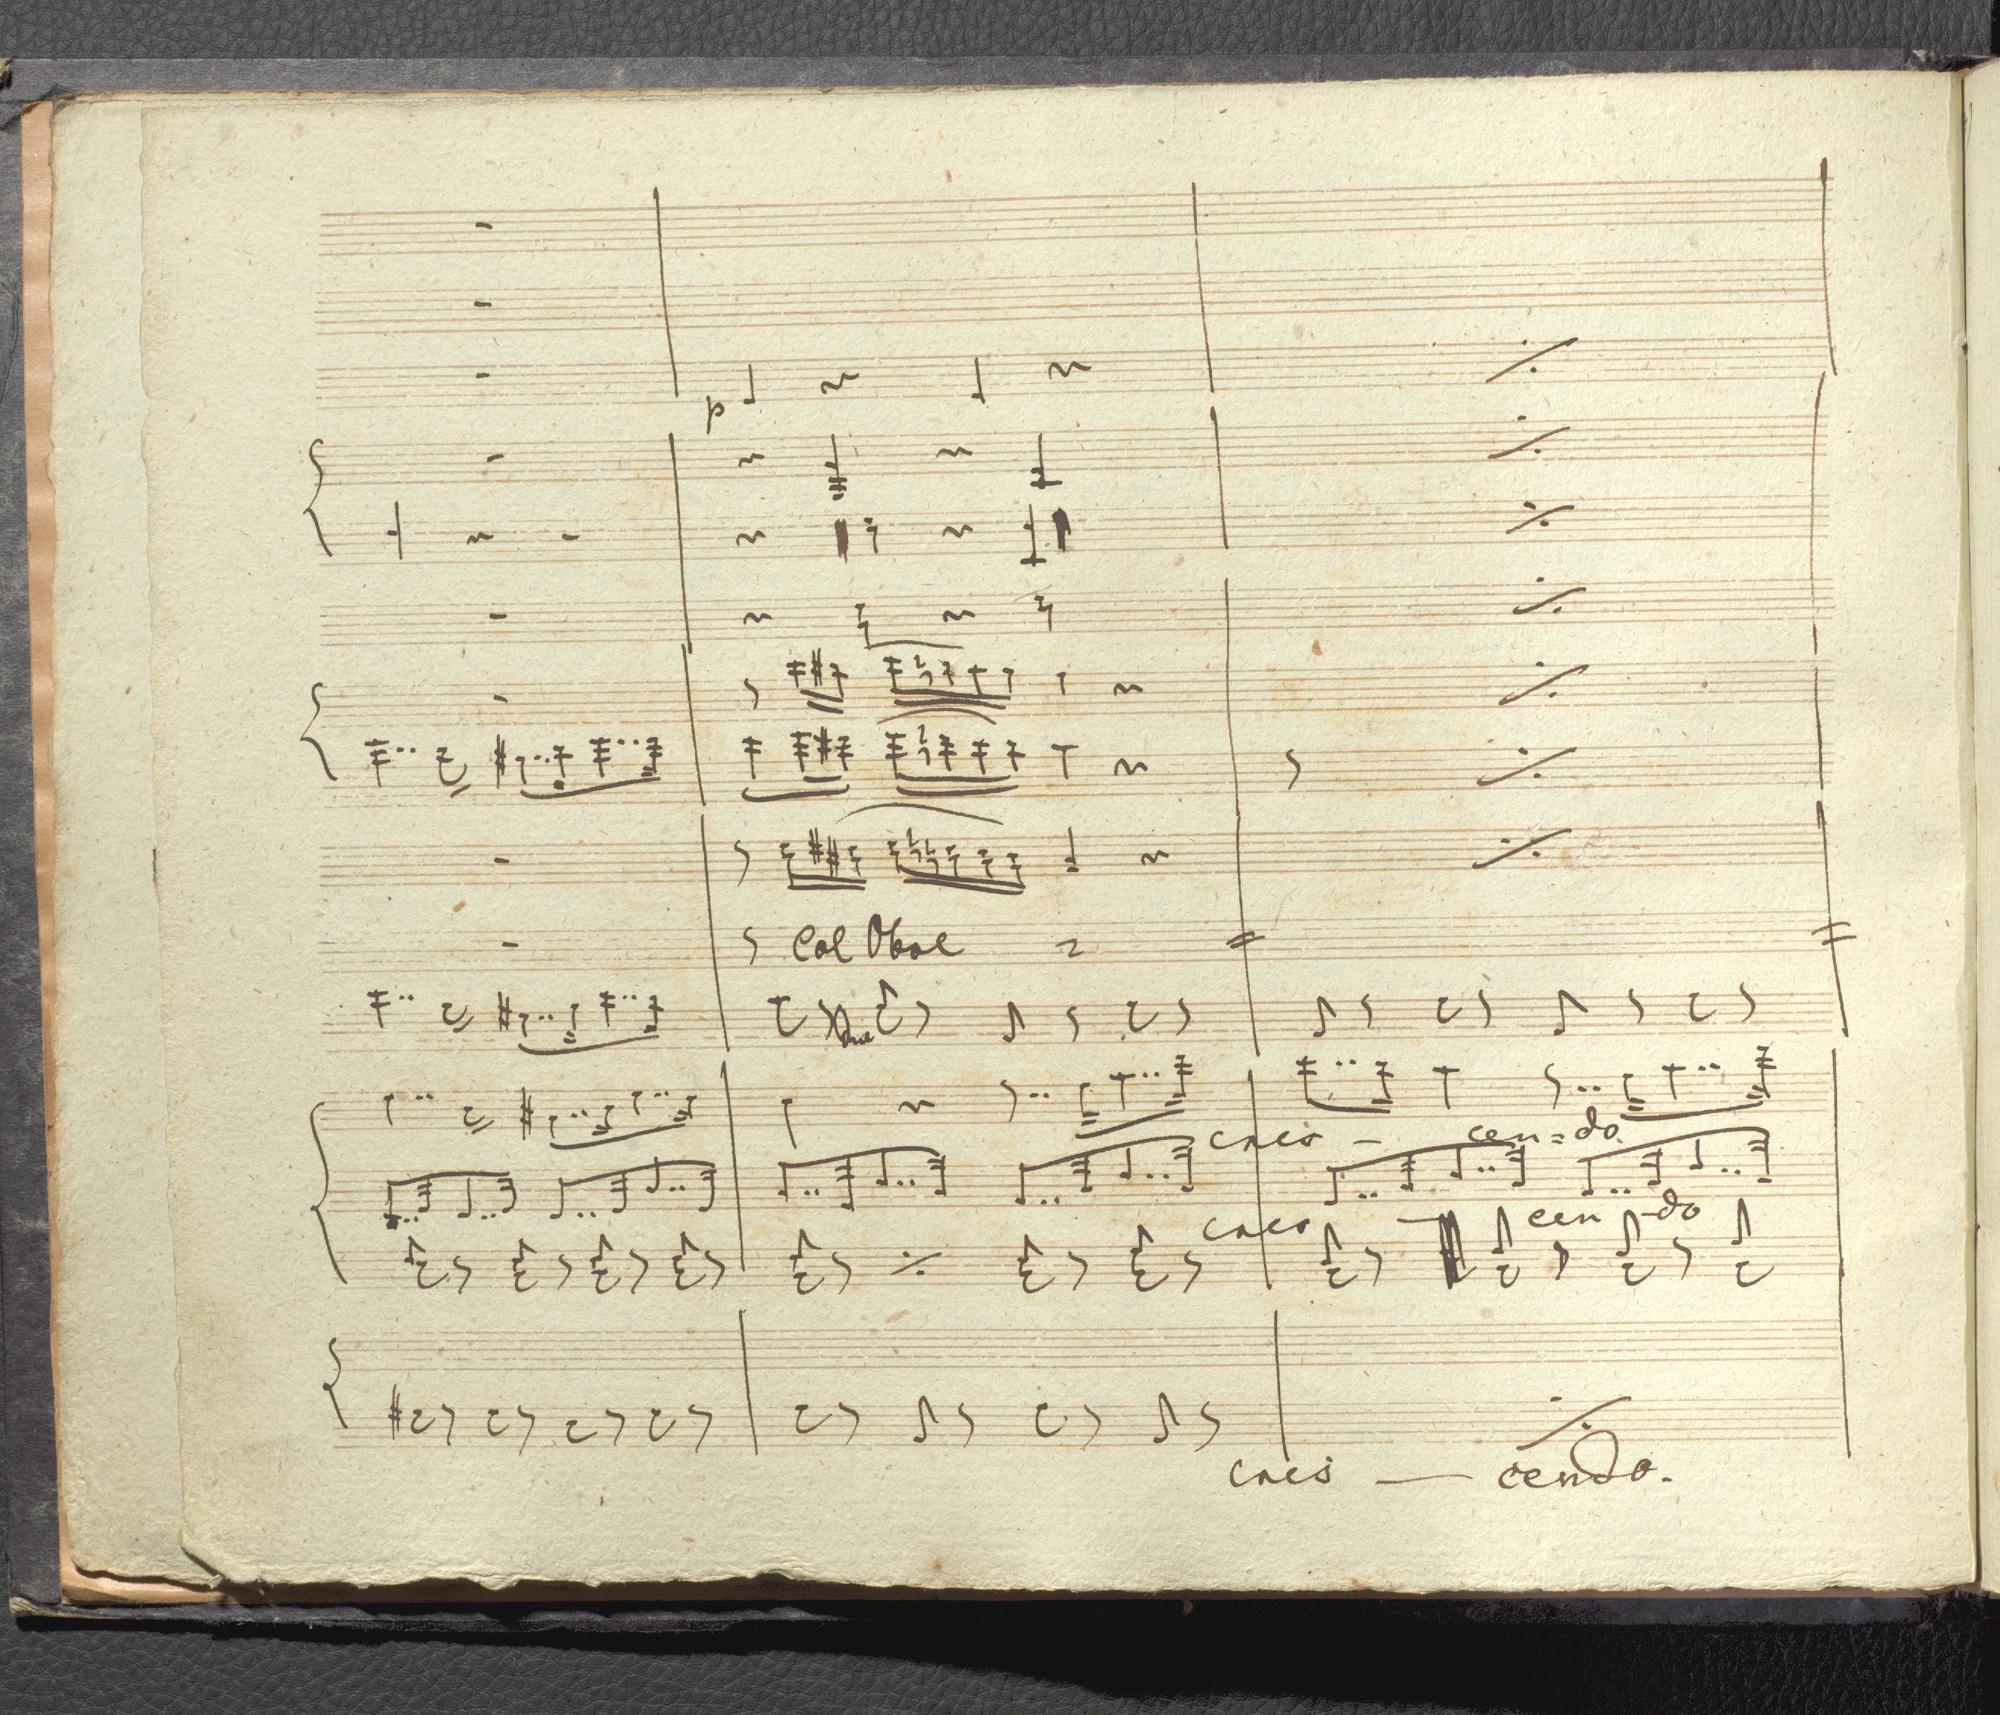 p
Col Oboe
cres - cen = do.
cres - cen - do
cres — cendo.